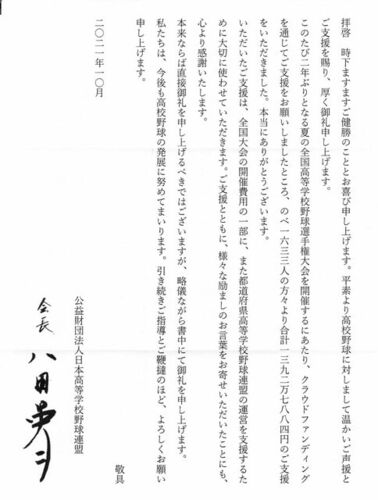 拝啓　時下ますますご健勝のこととお喜び申し上げます。平素より高校野球に対しまして温かいご声援と
ご支援を賜り、厚く御礼申し上げます。
このたび二年ぶりとなる夏の全国高等学校野球選手権大会を開催するにあたり、クラウドファンディング
を通じてご支援をお願いしましたところ、のべ一六三三人の方々より合計一三九二万七八八四円のご支援
をいただきました。本当にありがとうございます。
いただいたご支援は、全国大会の開催費用の一部に、また都道府県高等学校野球連盟の運営を支援するた
めに大切に使わせていただきます。ご支援とともに、様々な励ましのお言葉をお寄せいただいたことにも、
心より感謝いたします。
本来ならば直接御礼を申し上げるべきではございますが、略儀ながら書中にて御礼を申し上げます。
私たちは、今後も高校野球の発展に努めてまいります。引き続きご指導とご鞭撻のほど、よろしくお願い
申し上げます。
敬具
二〇二一年一〇月
公益財団法人日本高等学校野球連盟
会長　八田英二